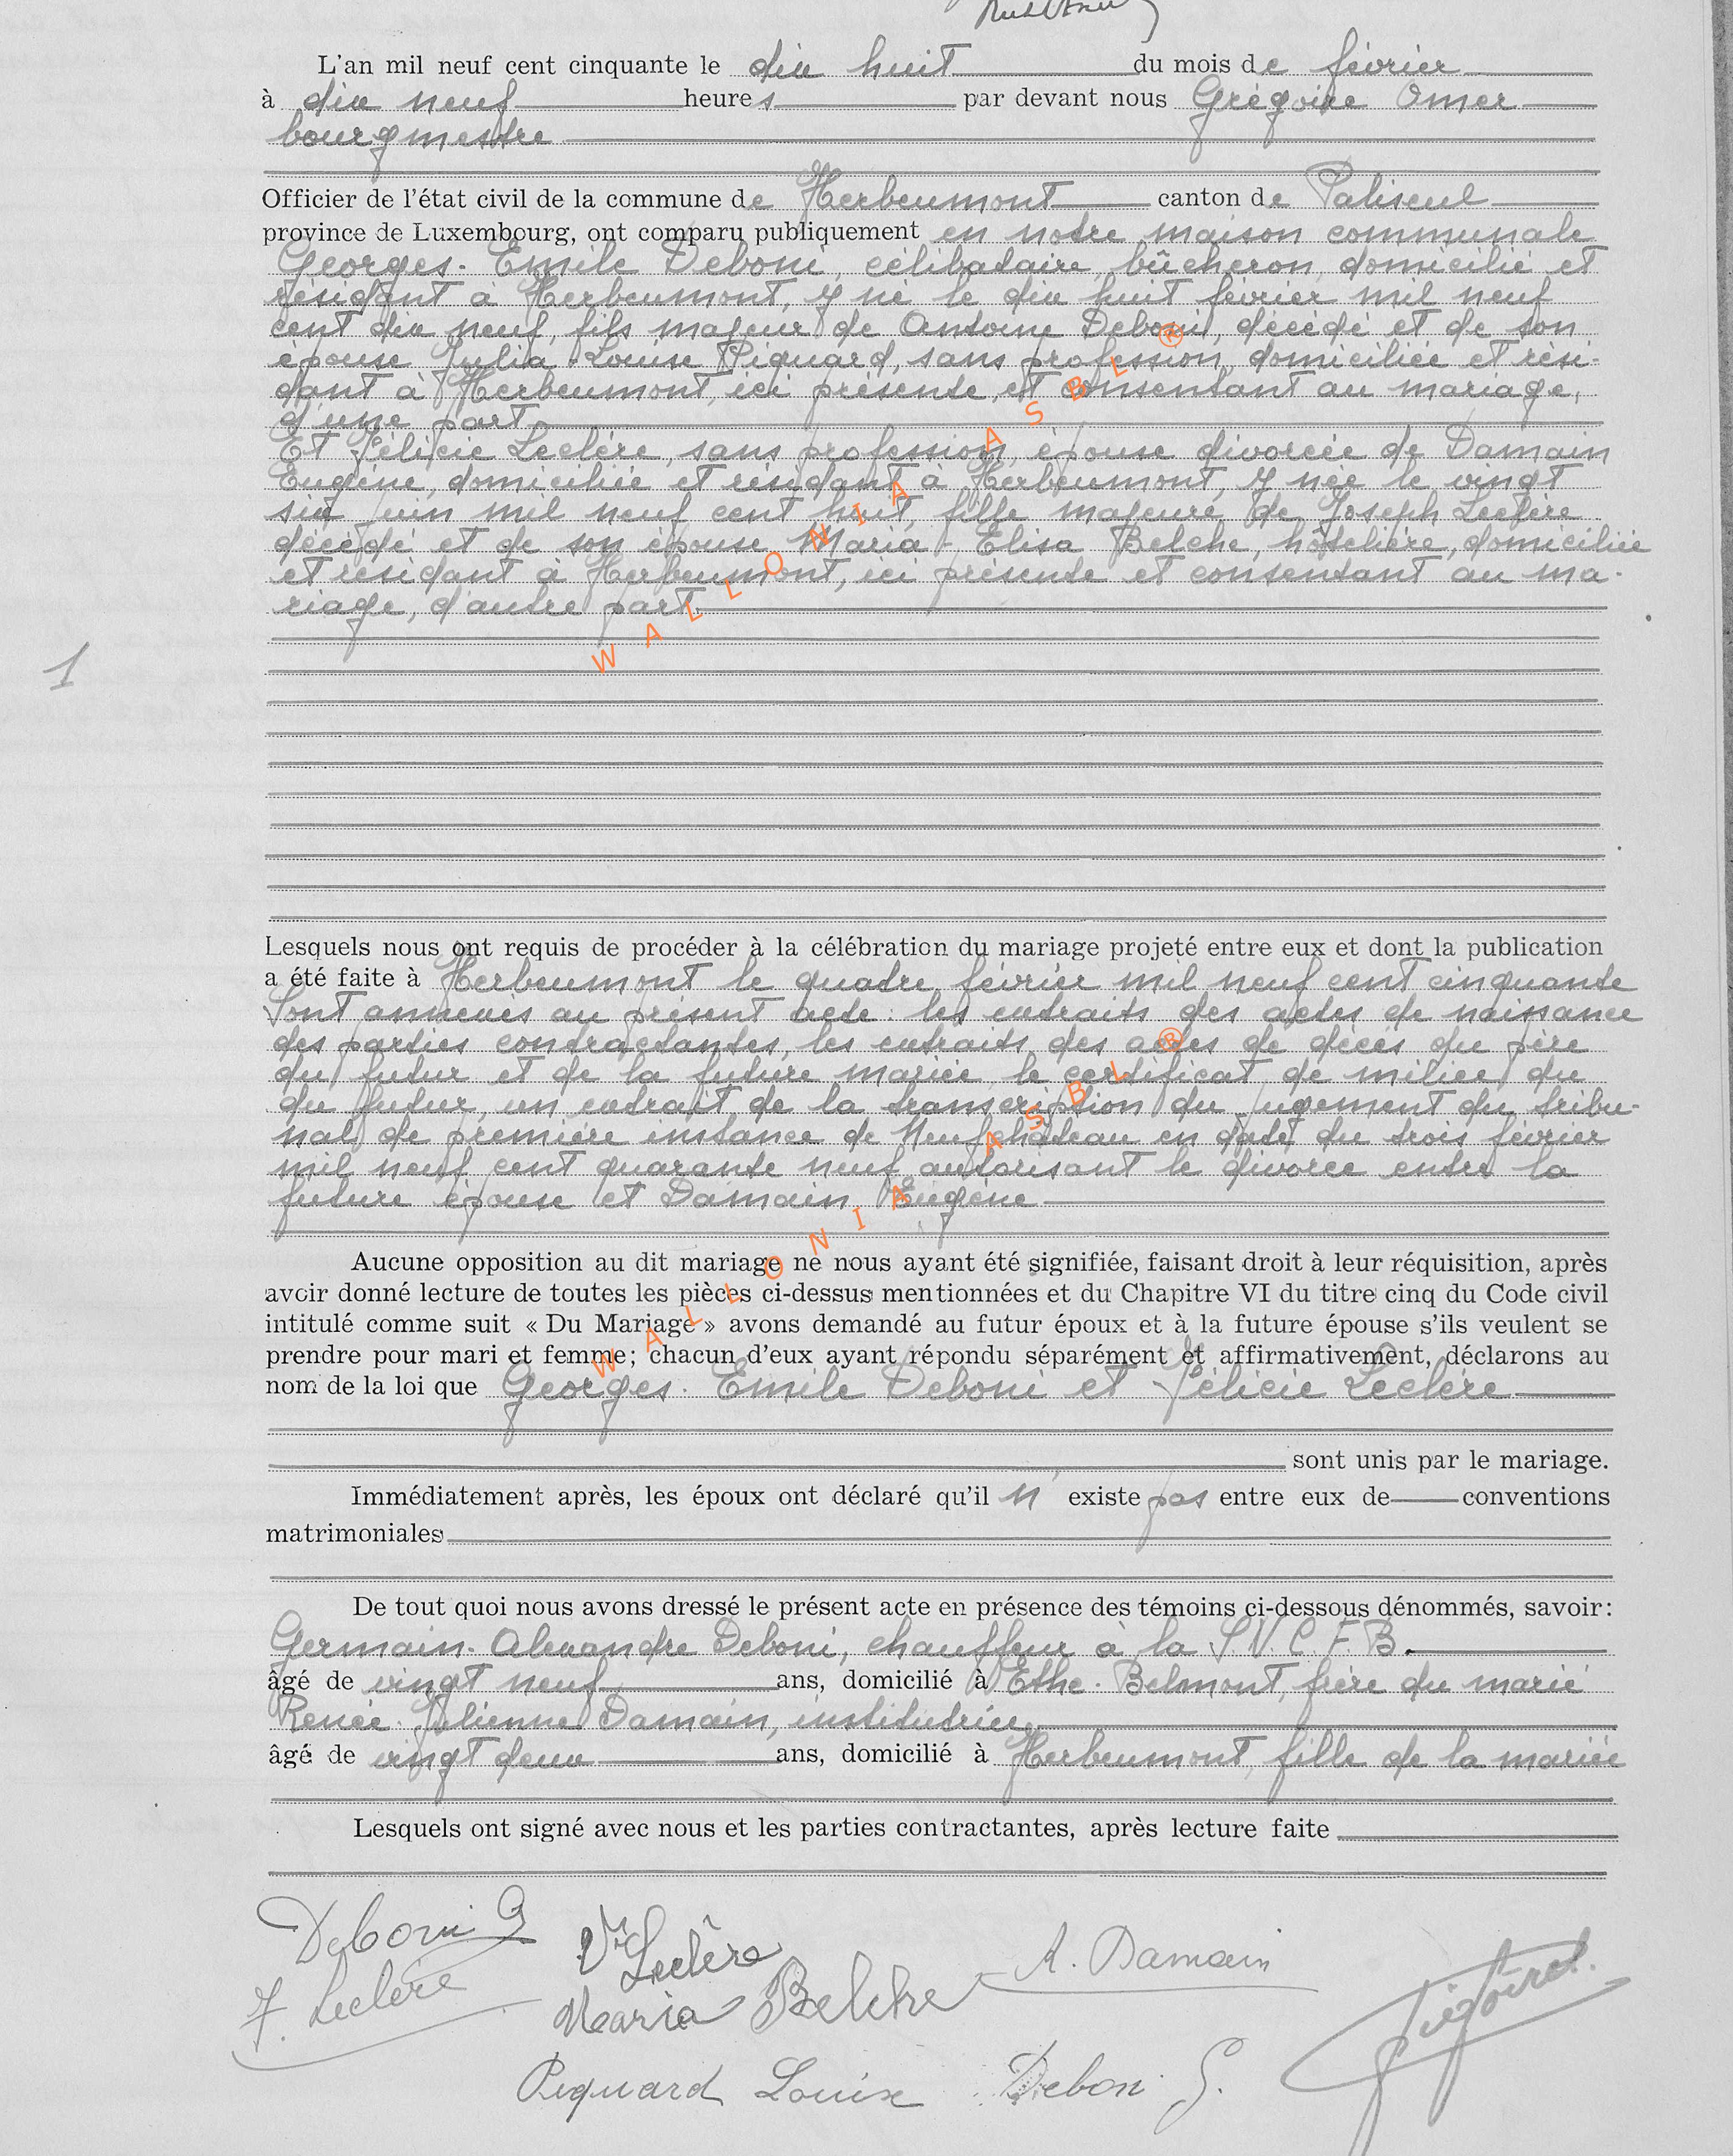 L'an mil neuf cent cinquante le dix huit du mois de février
à dix neuf heures par devant nous Grégoire Omer
bourgmestre
Officier de l'état civil de la commune de Herbeumont canton de Paliseul
province de Luxembourg, ont comparu publiquement en notre maison communale
Georges-Emile Deboni, célibataire, bûcheron, domicilié et
résidant à Herbeumont, y né le dix huit février mil neuf
cent dix neuf, fils majeur de Antoine Deboni, décédé et de son
épouse Julia-Louise Piquard, sans profession, domiciliée et rési-
dant à Herbeumont, ici présente et consentant au mariage,
d'une part
Et Félicie Leclère, sans profession, épouse divorcée de Damain
Eugène, domiciliée et résidant à Herbeumont, y née le vingt
six juin mil neuf cent huit, fille majeure de Joseph Leclère
décédé et de son épouse Maria-Elisa Belche, hôtelière, domiciliée
et résidant à Herbeumont, ici présente et consentant au ma-
riage, d'autre part
1
Lesquels nous ont requis de procéder à la célébration du mariage projeté entre eux et dont la publication
a été faite à Herbeumont le quatre février mil neuf cent cinquante
Sont annexés au présent acte: les extraits des actes de naissance
des parties contractantes, les extraits des actes de décès du père
du futur et de la future mariée, le certificat de milice du
du futur, un extrait de la transcription du jugement du tribu-
nal de première instance de Neufchâteau en date du trois février
mil neuf cent quarante neuf autorisant le divorce entre la
future épouse et Damain Eugène
Aucune opposition au dit mariage ne nous ayant été signifiée, faisant droit à leur réquisition, après
avoir donné lecture de toutes les pièces ci-dessus mentionnées et du Chapitre VI du titre cinq du Code civil
intitulé comme suit « Du Mariage » avons demandé au futur époux et à la future épouse s'ils veulent se
prendre pour mari et femme; chacun d'eux ayant répondu séparément et affirmativement, déclarons au
nom de la loi que Georges-Emile Deboni et Félicie Leclère
sont unis par le mariage.
Immédiatement après, les époux ont déclaré qu'il n' existe pas entre eux de conventions
matrimoniales
De tout quoi nous avons dressé le présent acte en présence des témoins ci-dessous dénommés, savoir:
Germain-Alexandre Deboni, chauffeur à la S.N.C.F.B.
âgé de vingt neuf ans, domicilié à Ethe-Belmont, frère du marié
Renée-Julienne Damain, institutrice
âgé de vingt deux ans, domicilié à Herbeumont, fille de la mariée
Lesquels ont signé avec nous et les parties contractantes, après lecture faite
Deboni G
Vve Leclère
R. Damain
F. Leclère
Maria Belche
Piquard Louise
Deboni G.
WALLONIA ASBL ®
WALLONIA ASBL ®